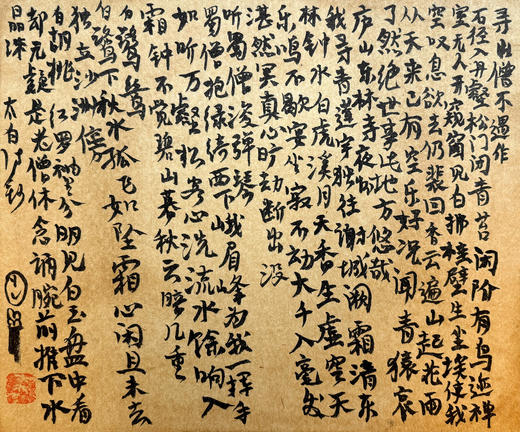 寻山僧不遇作
石径入丹壑松门闭青苔闲阶有鸟迹禅
室无人开窥窗见白拂挂壁生尘埃使我
空叹息欲去仍裴回香云遍山起花雨
从天来已有空乐好况闻青猿哀
了然绝世事此地方悠哉
庐山东林寺夜怀
我寻青莲宇独往谢城阙霜清东
林钟水白虎溪月天香生虚空天
乐鸣不歇宴坐寂不动大千入毫发
湛然冥真心旷劫断出没
听蜀僧浚弹琴
蜀僧抱绿绮西下峨眉峰为我一挥手
如听万壑松客心洗流水馀响入
霜钟不觉碧山暮秋云暗几重
白鹭鸶
白鹭下秋水孤飞如坠霜心闲且未去
独立沙洲傍
白胡桃红罗袖里分明见白玉盘中看
却无疑是老僧休念诵腕前推下水
晶珠
太白诗抄